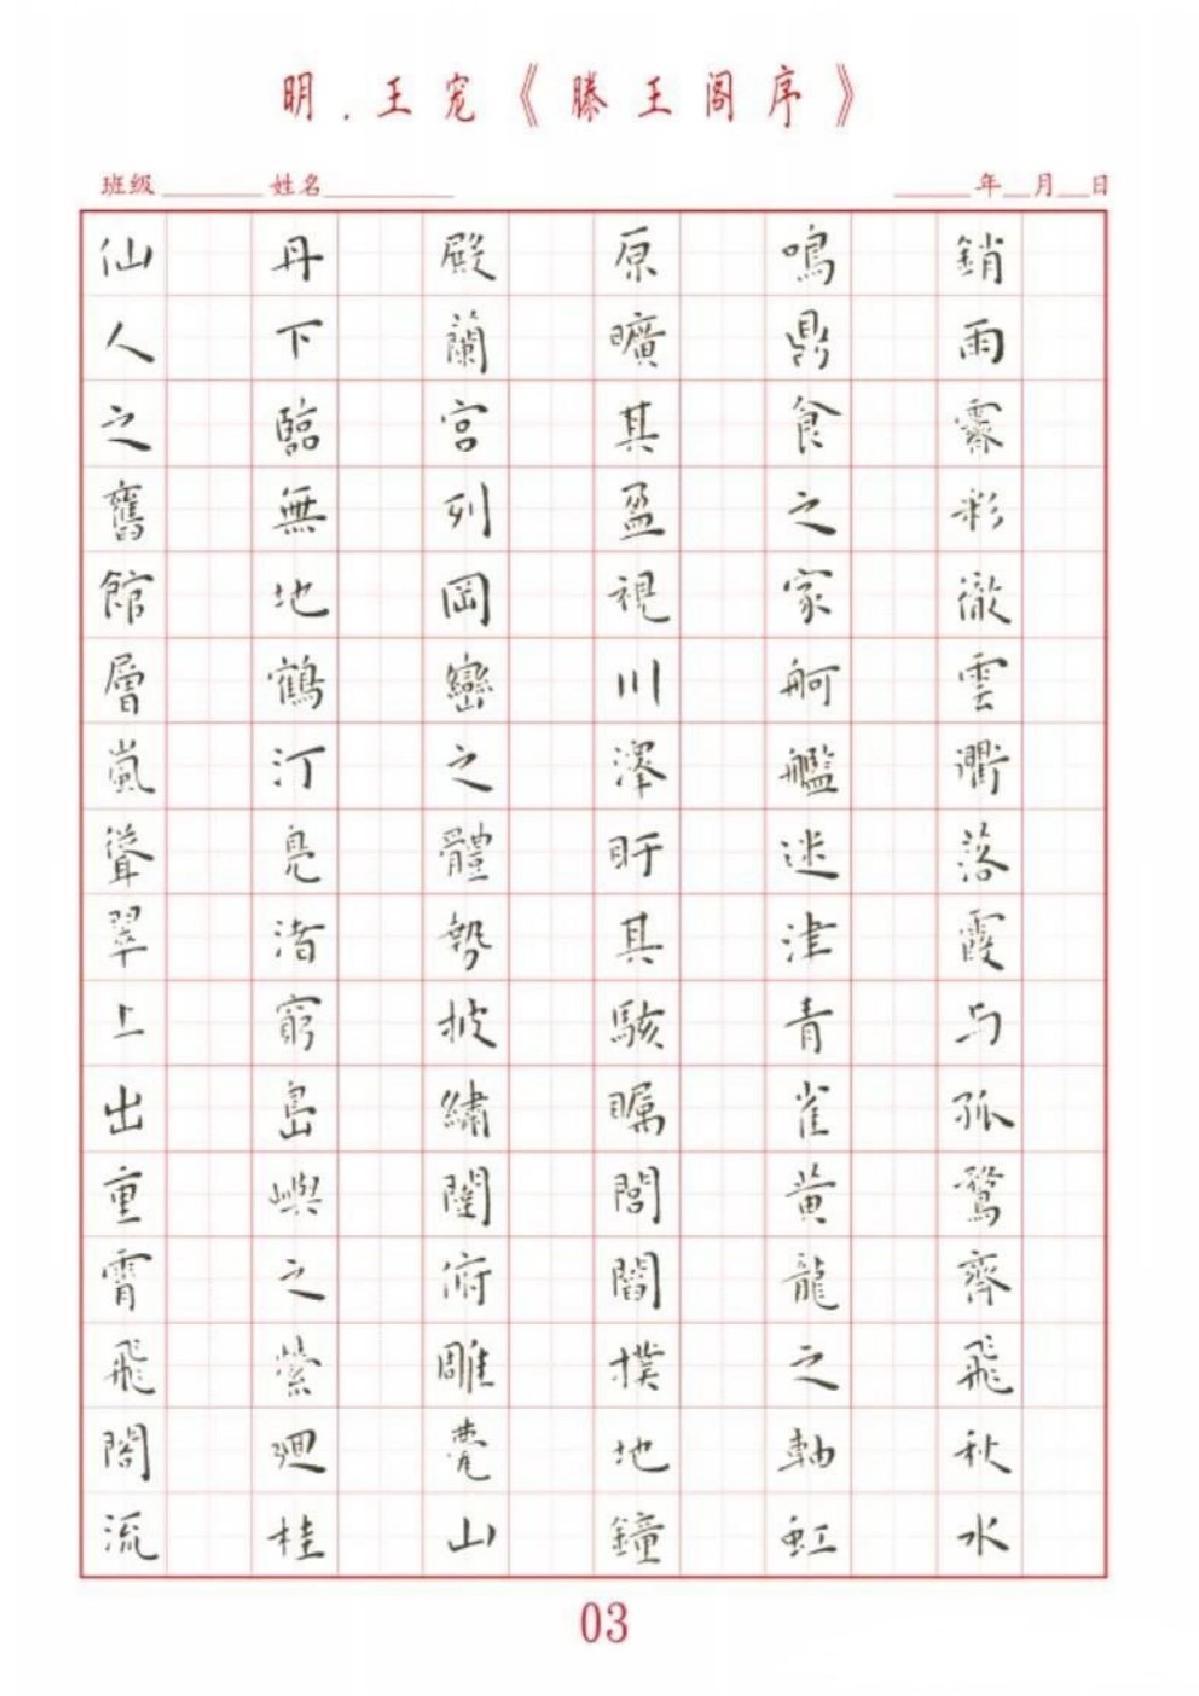 明．王宠《滕王阁序》
班级 姓名 年 月 日
仙人之舊館層嵐聳翠上出重霄飛閣流
丹下臨無地鶴汀鳧渚窮島嶼之縈迴桂
殿蘭宮列岡巒之體勢披繡闥俯雕甍山
原曠其盈視川澤盱其駭矚閭閻撲地鐘
鳴鼎食之家舸艦迷津青雀黃龍之軸虹
銷雨霽彩徹雲衢落霞与孤鶩齊飛秋水
03